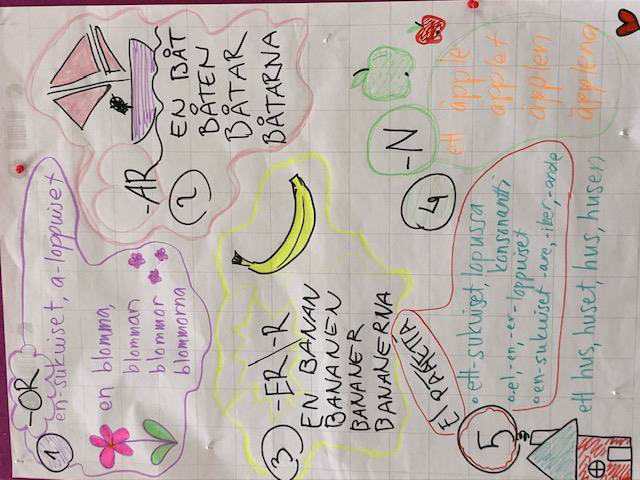 1 -OR
en-sukuiset, a-loppuiset
en blomma,
blomman
blommor
blommorna
-AR
2
EN BÅT
BÅTEN
BÅTAR
BÅTARNA
3 -ER\-R
EN BANAN
BANANEN
BANANER
BANANERNA
4 -N
ett äpple
äpplet
äpplen
äpplena
5 EI PÄÄTETTÄ
• ett-sukuiset, lopussa
konsonantti
o -el, -en, -er -loppuiset
o en-sukuiset -are, -iker, -ande
ett hus, huset, hus, husen